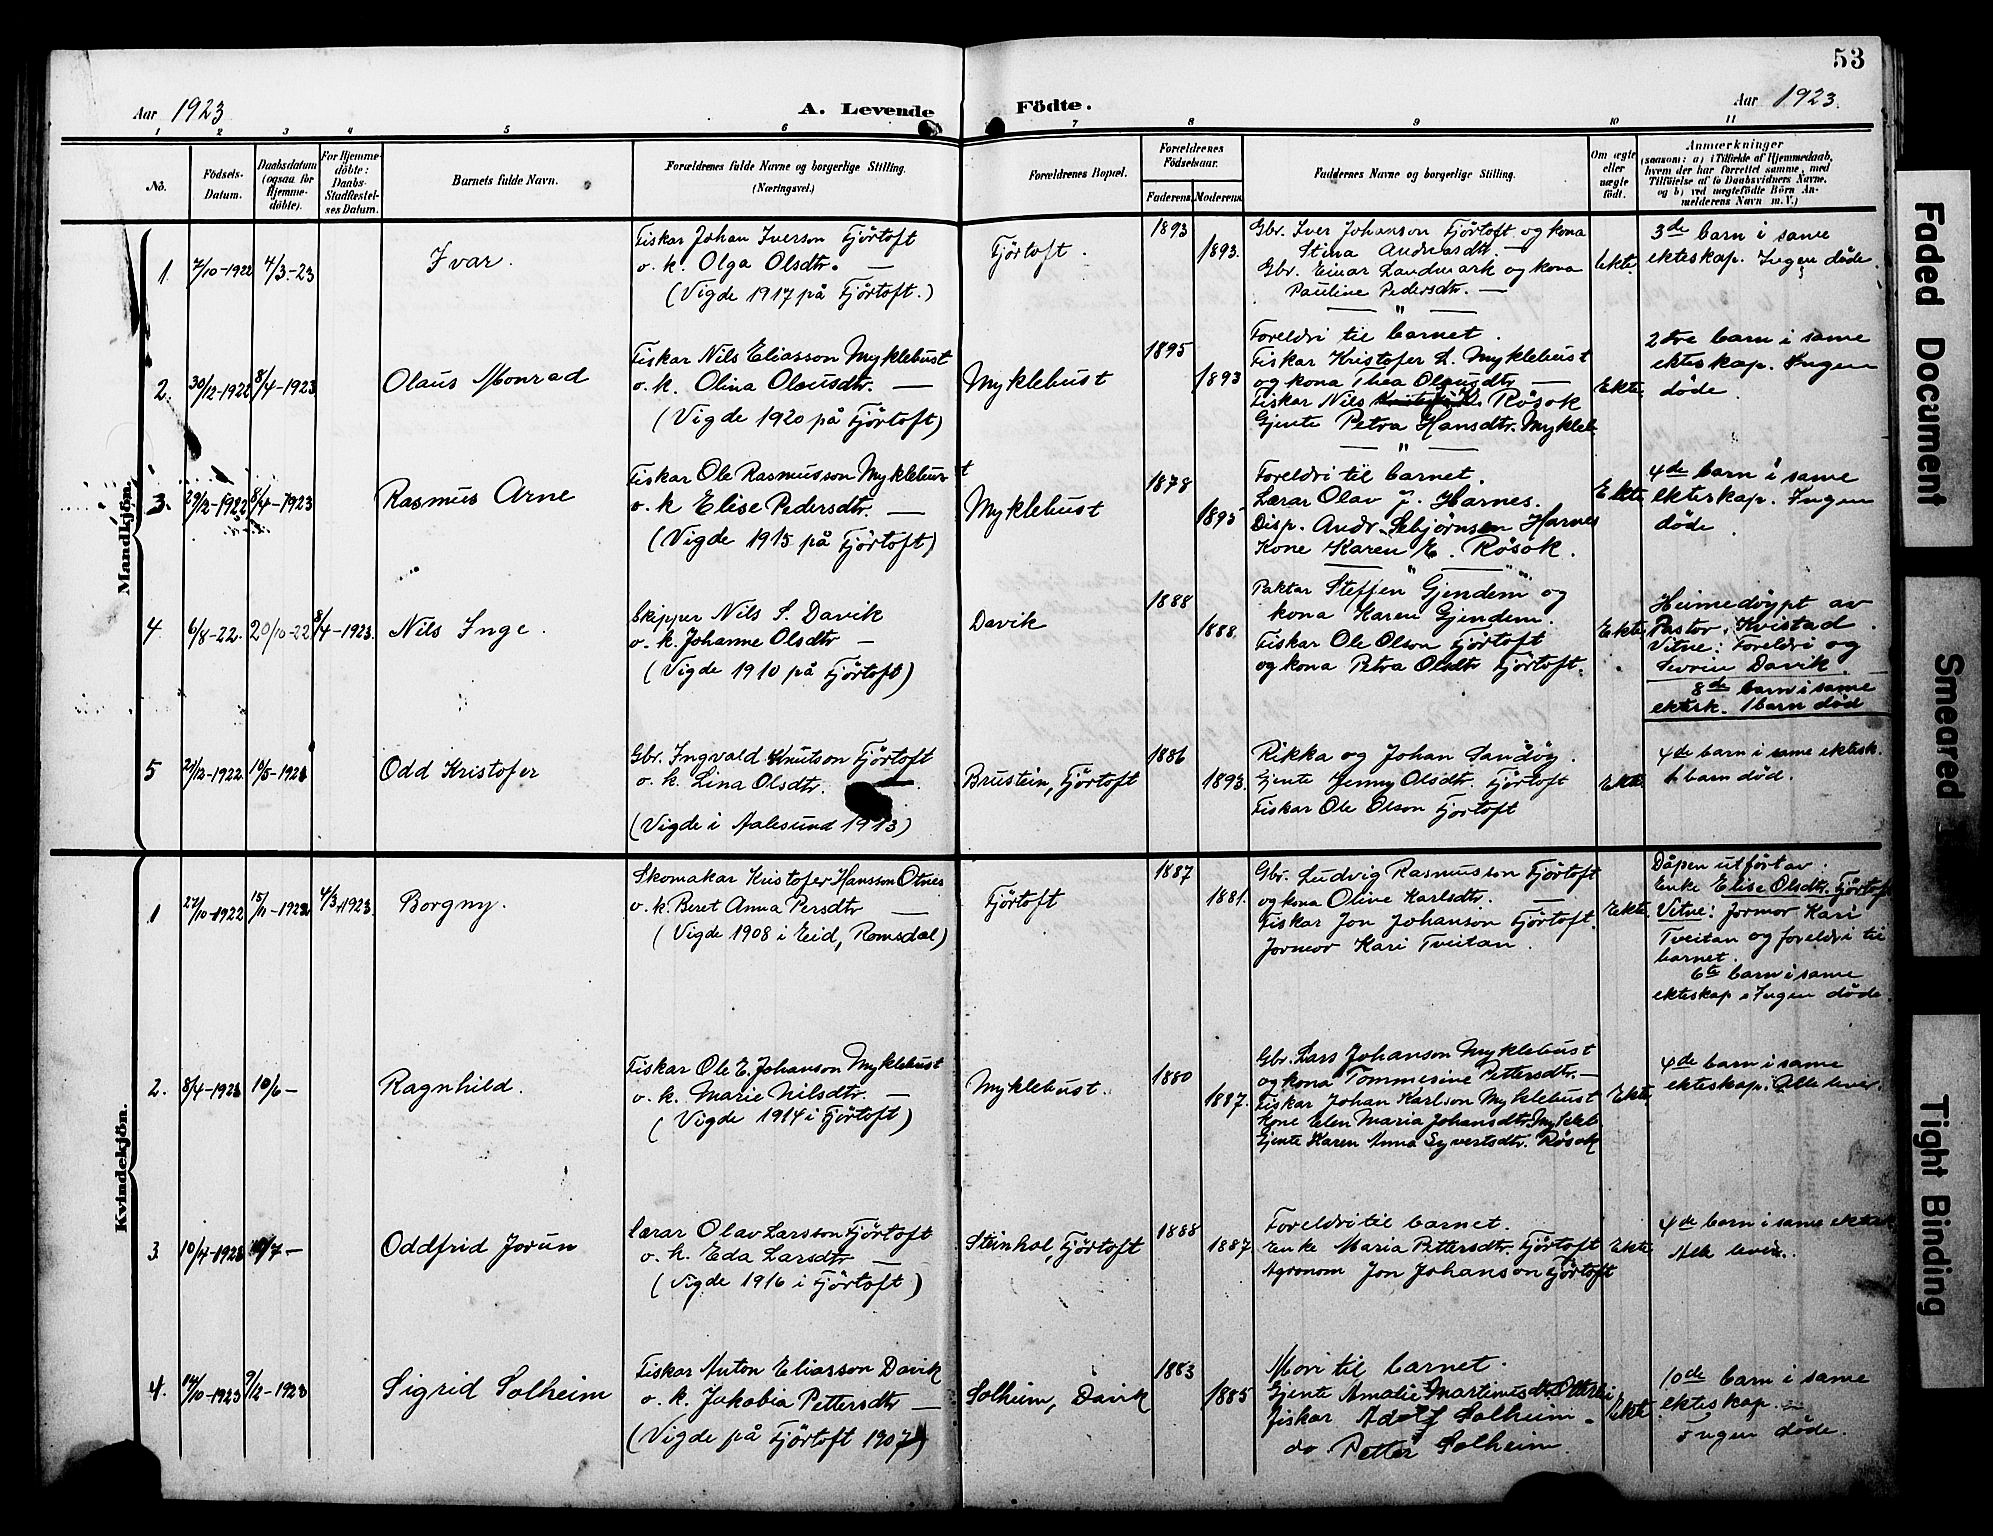 53
Aar 1923
A. Levende
Födte.
Aar 1923.
1 2 3 4 5 6 7 8 9 10 11
No.
Födsels-
Datum.
Daabsdatum
(ogsaa for
Hjemme-
döbte).
For Hjemme-
döbte:
Daabs-
Stadfæstel-
ses Datum.
Barnets fulde Navn.
Forældrenes fulde Navne og borgerlige Stilling.
(Næringsvei.)
Forældrenes Bopæl.
Forældrenes
Födselsaar.
Faderens
Moderens
Faddernes Navne og borgerlige Stilling.
Om ægte
eller
uægte
födt.
Anmærkninger
(saasom: a) i Tilfælde af Hjemmedaab,
hvem der har forrettet samme, med
Tilföielse af to Daabsvidners Navne,
og b) ved uægtefödte Börn An-
melderens Navn m. V.)
Mandkjön.
1
7/10-1922
4/3-23
Ivar.
Fiskar Johan Iverson Fjörtoft
o. k. Olga Olsdtr. —
(Vigde 1917 på Fjörtoft.)
Fjörtoft.
1893
1893.
Gbr. Iver Johanson Fjörtoft og kona
Stina Andreasdtr. —
Gbr. Einar Landmark og kona
Pauline Pedersdtr. —
ekte
3de barn i same
ekteskap. Ingen döde.
2.
30/12-1922
8/4-1923
Olaus Monrad
Fiskar Nils Eliasson Myklebust
o. k. Olina Olausdtr. —
(Vigde 1920 på Fjörtoft)
Myklebust
1895
1893
— " —
Foreldri til barnet.
Fiskar Kristofer L. Myklebust
og kona Thea Olausdtr —
Fiskar Nils K. Rösok
Gjente Petra Hansdtr. Mykleb.
Ekte
2dre barn i same
ekteskap. Ingen
döde.
3.
29/12-1922
8/4-1923
Rasmus Arne
Fiskar Ole Rasmusson Myklebust
o. k Elise Pedersdtr. —
(Vigde 1915 på Fjörtoft)
Myklebust
1878
1895
— " —
Foreldri til barnet.
Lærar Olav J. Harnes.
Disp. Andr. Sebjörnsen Harnes
Kone Karen E. Rösok.
Ekte
4de barn i same
ekteskap. Ingen
döde.
4
6/8-22.
20/10-22
8/4-1923.
Nils Inge.
Skipper Nils S. Davik
o. k. Johanne Olsdtr —
(Vigde 1910 på Fjörtoft)
Davik
1888
1888.
— " —
Paktar Steffen Gjendem og
kona Karen Gjendem.
Fiskar Ole Olson Fjörtoft
og kona Petra Olsdtr Fjörtoft.
Ekte
Heimedöypt av
Pastor Kvistad.
Vitne: Foreldri og
Severin Davik.
8de barn i same
ektesk. 1 barn död
5
29/12-1922
10/5-1923
Odd Kristofer
Gbr. Ingvald Knutson Fjörtoft
o. k. Lina Olsdtr.
(Vigde i Aalesund 1913)
Brustein, Fjörtoft
1886
1893.
Rikka og Johan Sandöy.
Gjente Jenny Olsdtr. Fjörtoft
Fiskar Ole Olson Fjörtoft
Ekte
4de barn i same ektesk.
1 barn död.
Kvindekjön.
1
27/10-1922
15/11-1922
4/3-1923.
Borgny.
Skomakar Kristofer Hansson Otnes
o. k. Beret Anna Persdtr —
(Vigde 1908 i Eid, Romsdal)
Fjörtoft
1887
1881.
Gbr. Ludvig Rasmusson Fjörtoft
og kona Oline Karlsdtr. —
Fiskar Jon Johanson Fjörtoft.
Jormor Kari Tveitan.
Ekte
Dåpen utfört av
Enke Elise Olsdtr. Fjörtoft
Vitne: Jormor Kari
Tveitan og foreldri til
barnet.
6te barn i same
ekteskap. Ingen döde.
2.
8/4-1923
10/6-
Ragnhild.
Fiskar Ole E. Johanson Myklebust
o. k. Marie Nilsdtr. —
(Vigde 1914 i Fjörtoft)
Myklebust.
1880
1887.
Gbr. Lars Johanson Myklebust
og kona Tommesine Pettersdtr. —
Fiskar Johan Karlson Myklebust
Kone Elen Maria Johansdtr. Mykleb.
Gjente Karen Anna Syvertsdtr. Rösok
Ekte
4de barn i same
ekteskap. Alle lever.
3
10/4-1923
/7 —
Oddfrid Jorun
Lærar Olav Larsson Fjörtoft
o. k. Eda Larsdtr —
(Vigde 1916 i Fjörtoft)
Steinhol, Fjörtoft
1888
1887
Foreldri til barnet.
Enke Maria Pettersdtr. Fjörtoft
Agronom Jon Johanson Fjörtoft
Ekte
4de barn i same ektesk.
Alle lever.
4.
14/10-1923
9/12-1923
Sigrid Solheim
Fiskar Anton Eliasson Davik
o. k. Jakobia Pettersdtr —
(Vigde på Fjörtoft 1907)
Solheim, Davik
1883
1885
Mori til barnet.
Gjente Amalie Martinusdtr. Otterlei
Fiskar Adolf Solheim.
do Petter Solheim
Ekte
10de barn i same
ekteskap.
Ingen döde.
Faded Document
Smeared
Tight Binding